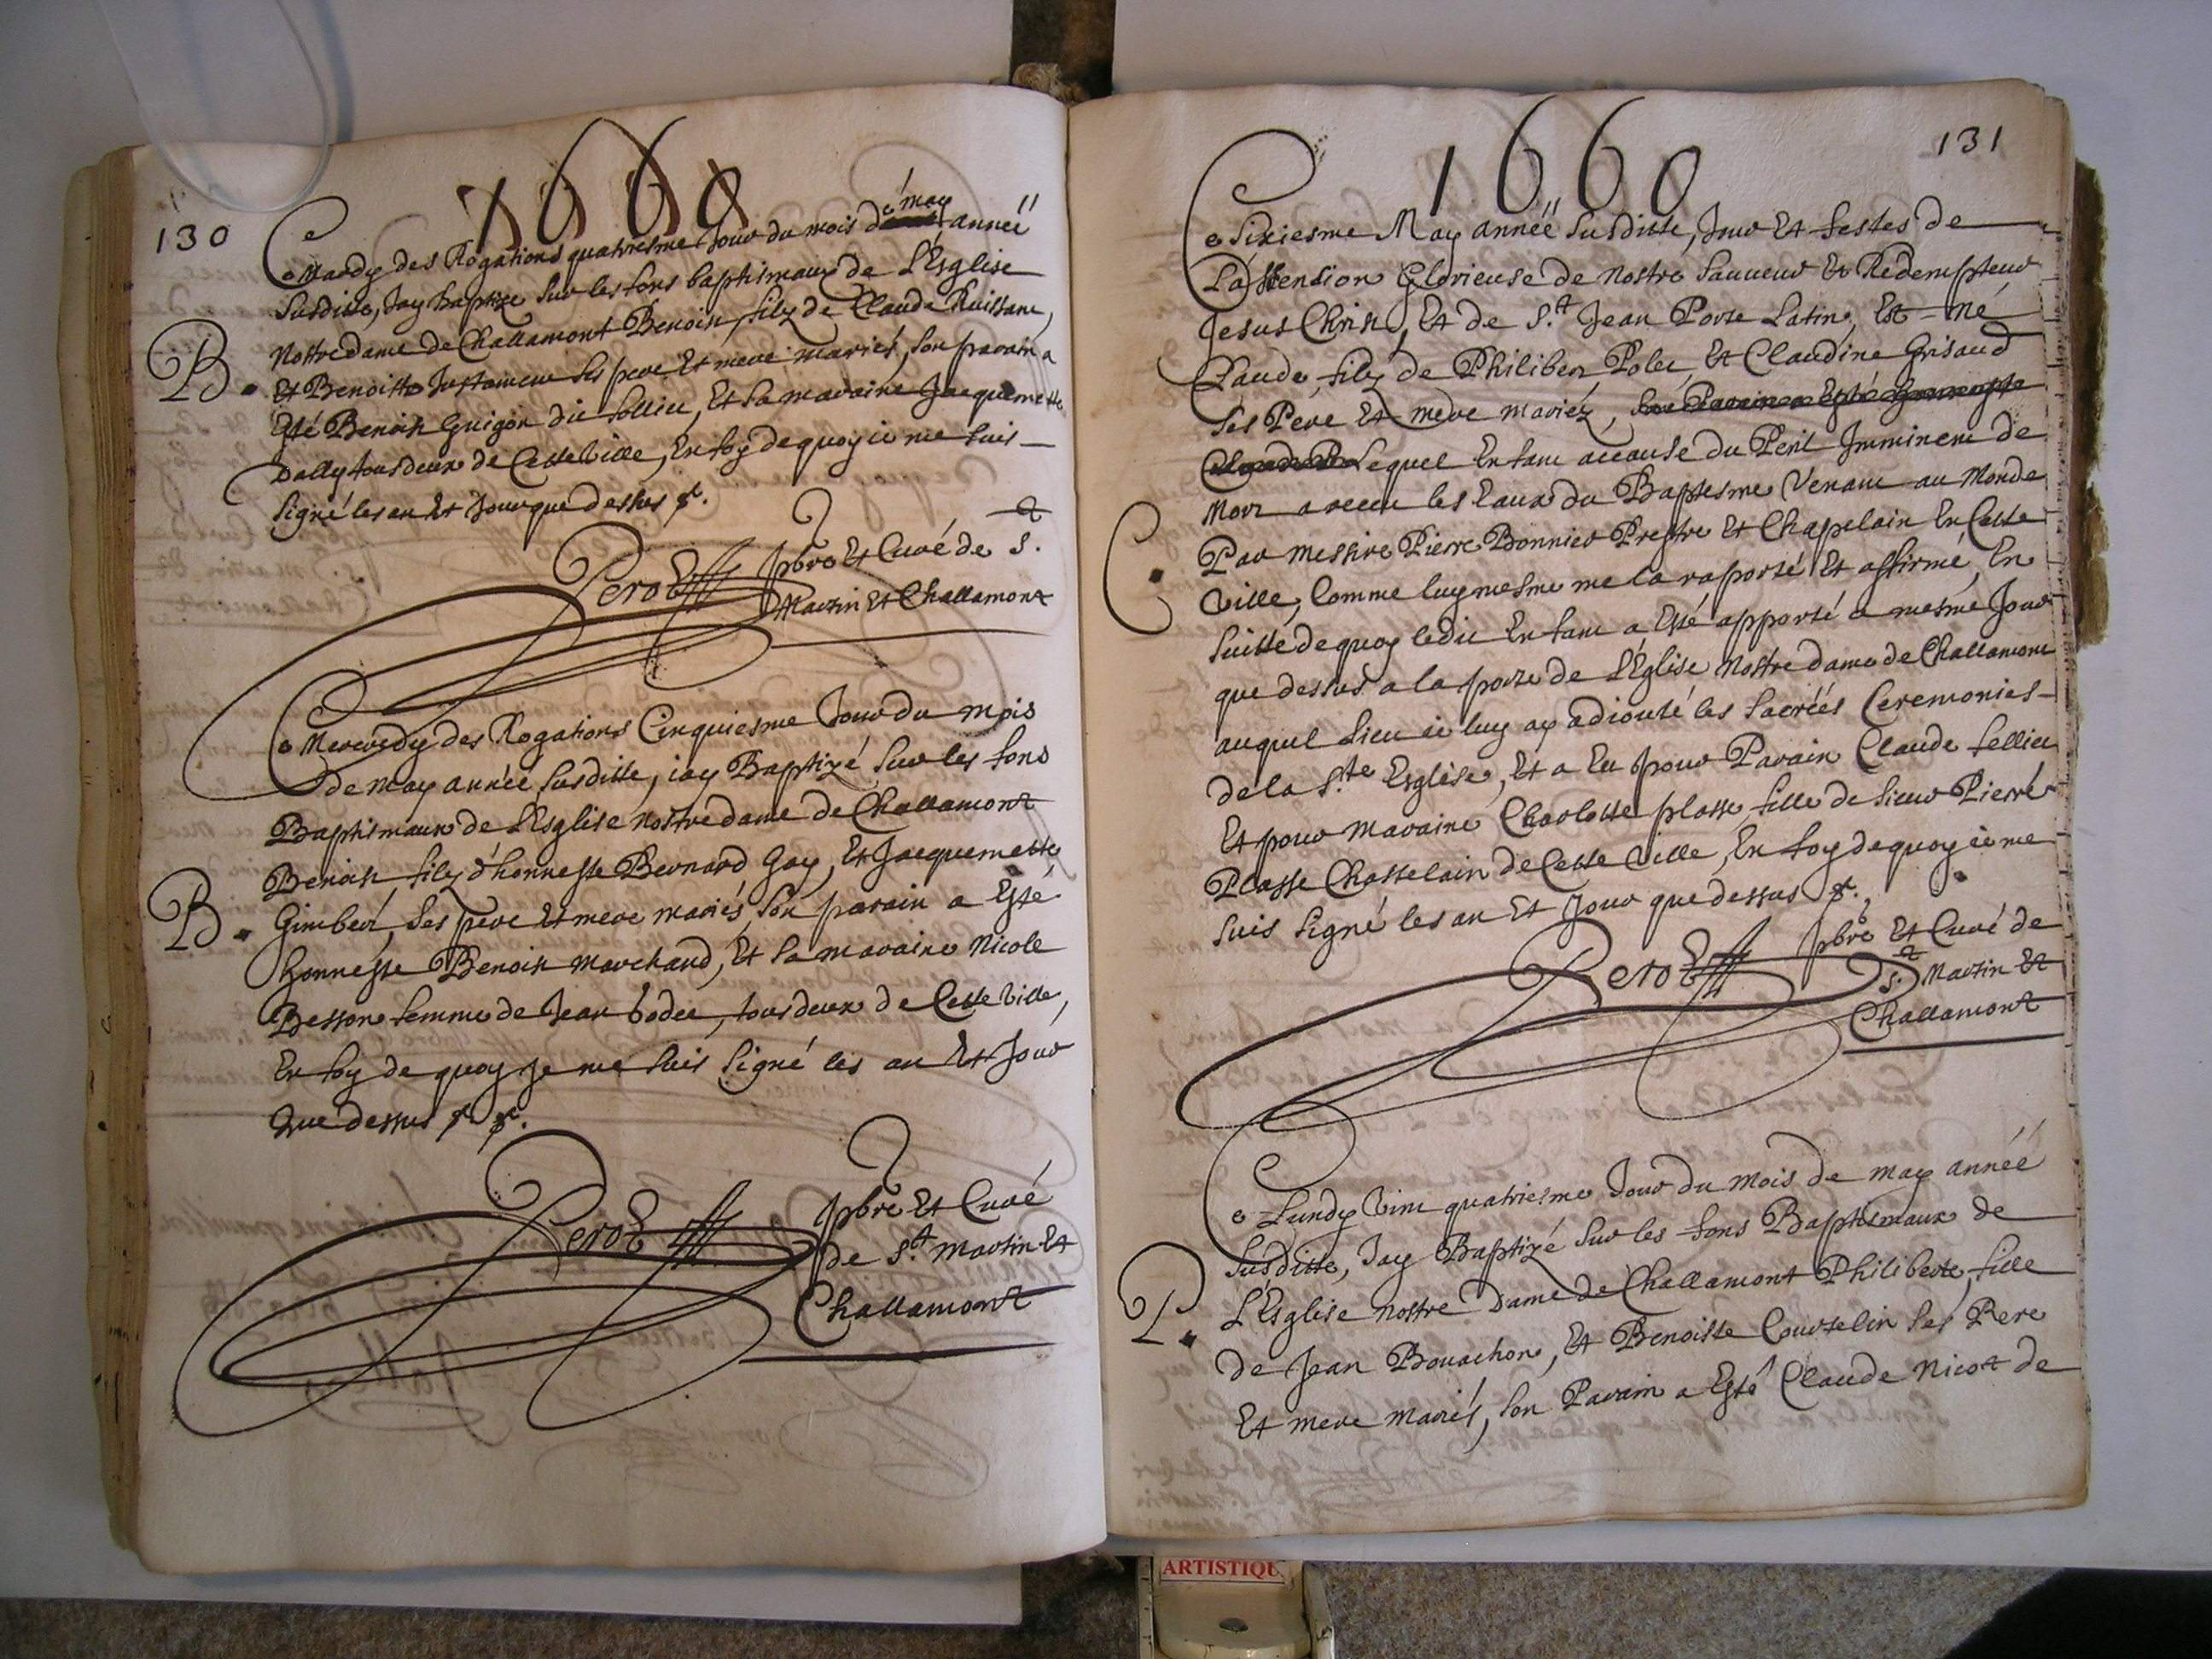 1660
130
Ce Mardy des Rogations quatriesme Jour du mois de may année
Susditte, Jay baptize sur les fons baptismaux de L'Esglise
Nostre dame de Challamont Benoist, filz de Claude Ruissant,
B. Et Benoitte Justament ses pere Et mere mariés, son parain a
Esté Benoist Guigon dit Sollier, Et sa maraine Jacquemette
Dally tous deux de Cette Ville, En foy de quoy ie me suis
Signé les an Et Jour que dessus
PeroEt pbre Et Curé de St
Martin Et Challamont
Ce Mercredy des Rogations Cinquiesme Jour du mois
de may année susditte, iay Baptizé sur les fons
Baptismaux de L'Esglise nostre dame de Challamont
Benoist, filz d'honneste Bernard Gay, Et Jacquemette
B. Gimbert, ses pere Et mere mariés, son parain a Esté
honneste Benoist marchand, Et sa maraine Nicole
Besson femme de Jean bodet, tous deux de Cette Ville,
En foy de quoy je me suis signé les an Et Jour
Que dessus
PeroEt pbre Et Curé
de St. Martin Et
Challamont
1660
131
Ce Sixiesme May année Susditte, Jour Et festes de
L'assension Glorieuse de Nostre Sauveur Et Redempteur
Jesus Christ, Et de St. Jean Porte Latine, Est né
Claude, filz de Philibert Polet, Et Claudine Grisaud
Ses Pere Et mere mariéz,
Lequel Enfant a cause du Peril Imminent de
Mort a receu les Eaux du Baptesme Venant au Monde
C. Par Messire Pierre Bonnier Prestre Et Chapelain En Cette
Ville, Comme luy mesme me la raporté Et affirmé, En
suitte de quoy ledit Enfant a Esté apporté a mesme Jour
que dessus a la porte de L'Eglise Nostre dame de Challamont
auquel lieu ie luy ay adiouté les sacréés Ceremonies
de la Ste Esglise, Et a Eu pour Parain Claude Sellier
Et pour maraine Charlotte plasse, fille de Sieur Pierre
Plasse Chastelain de Cette Ville, En foy de quoy ie me
suis signé les an Et Jour que dessus
PeroEt pbre Et Curé de
St Martin Et
Challamont
Ce Lundy Vint quatriesme Jour du mois de may année
Susditte, Jay Baptizé sur les fons Baptismaux de
P. L'Esglise nostre Dame de Challamont Philiberte, fille
de Jean Bouachon, Et Benoitte Courtelin ses Pere
Et mere mariés, son Parain a Esté Claude Nicot de
ARTISTIQU